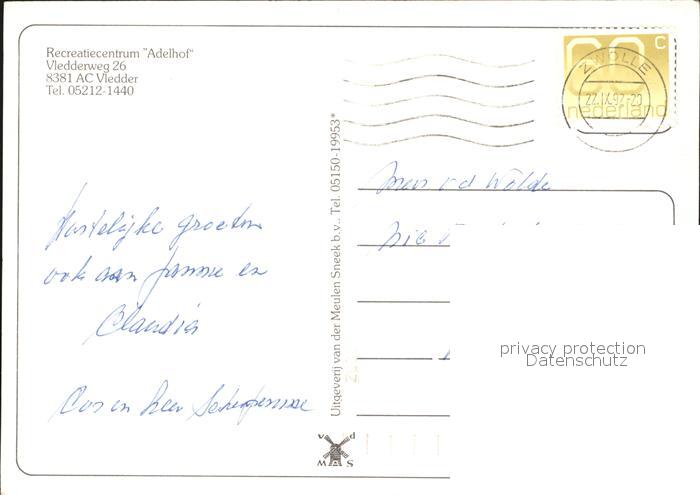 Recreatiecentrum "Adelhof"
Vledderweg 26
8381 AC Vledder
Tel. 05212-1440
60 c
nederland
ZWOLLE
22.IX.92-20
Uitgeverij van der Meulen Sneek b.v., Tel. 05150-19953*
v d
MAS
Hartelijke groeten
ook aan Jannie en
Claudia
Cor en
v d Wolde
privacy protection
Datenschutz